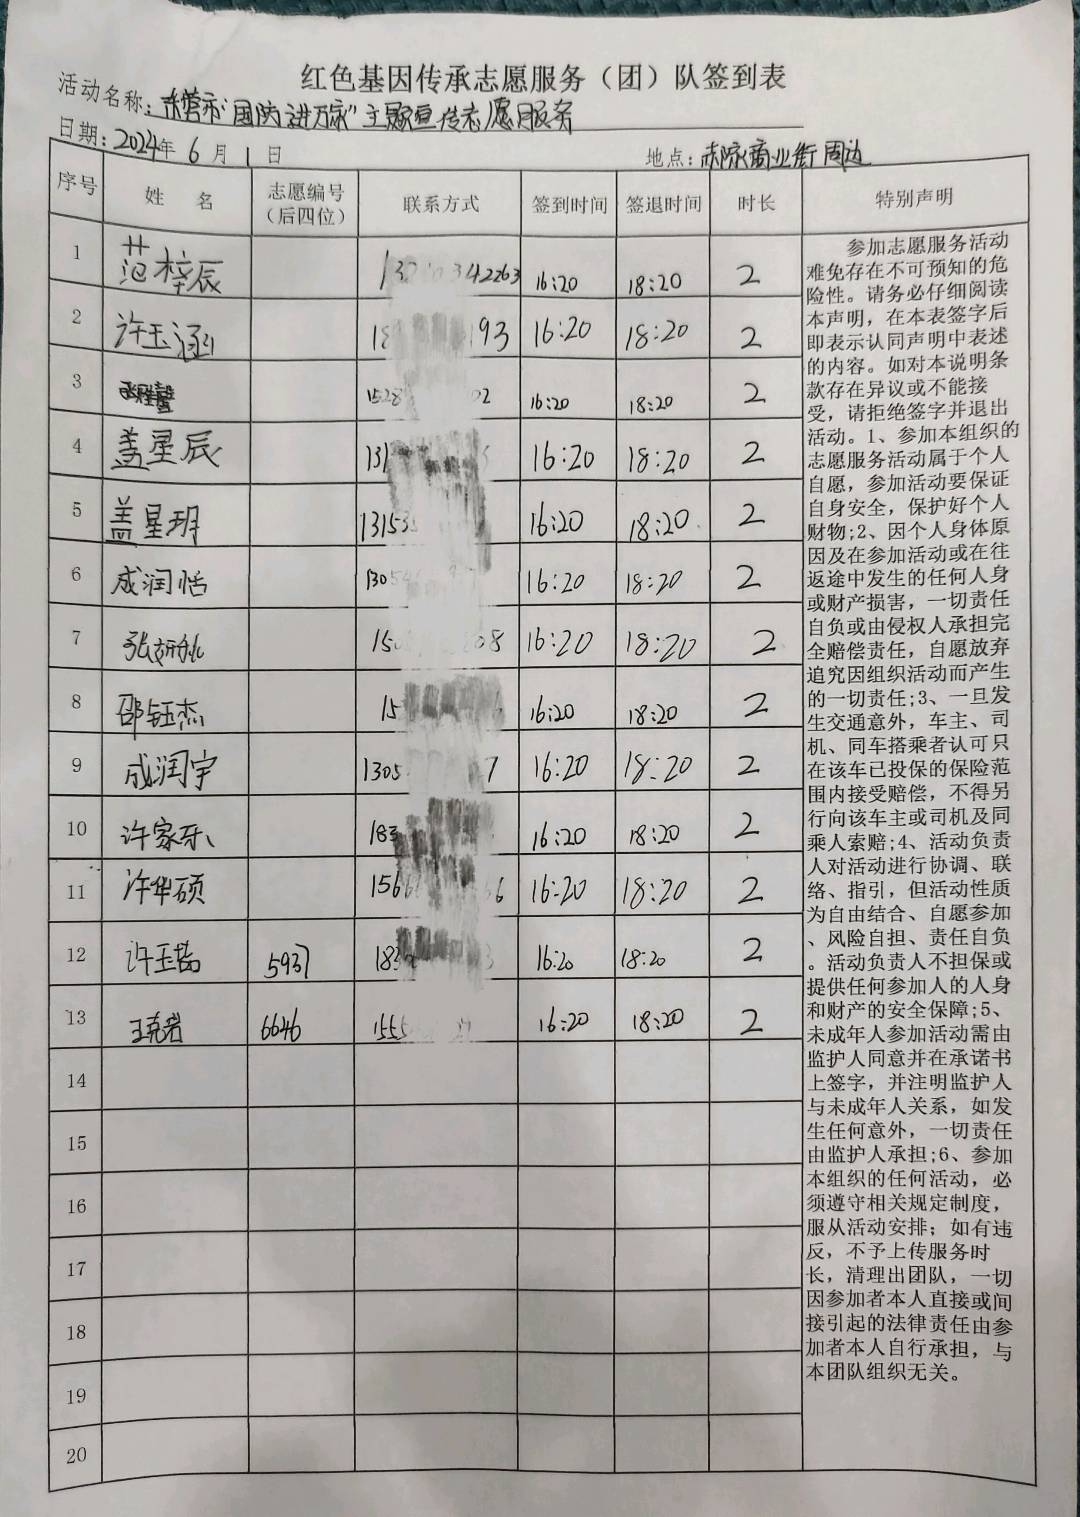 红色基因传承志愿服务（团）队签到表
活动名称：东营市“国防进万家”主题宣传志愿服务
日期：2024年 6 月 1 日 地点：商业街周边
序号 姓 名 志愿编号（后四位） 联系方式 签到时间 签退时间 时长 特别声明
1 范梓辰 16:20 18:20 2
2 许玉涵 16:20 18:20 2
3 16:20 18:20 2
4 盖星辰 16:20 18:20 2
5 盖星玥 16:20 18:20 2
6 成润恬 16:20 18:20 2
7 16:20 18:20 2
8 邵钰杰 16:20 18:20 2
9 成润宇 16:20 18:20 2
10 许家乐 16:20 18:20 2
11 许华硕 16:20 18:20 2
12 5937 16:20 18:20 2
13 6646 16:20 18:20 2
14
15
16
17
18
19
20
参加志愿服务活动
难免存在不可预知的危
险性。请务必仔细阅读
本声明，在本表签字后
即表示认同声明中表述
的内容。如对本说明条
款存在异议或不能接
受，请拒绝签字并退出
活动。1、参加本组织的
志愿服务活动属于个人
自愿，参加活动要保证
自身安全，保护好个人
财物;2、因个人身体原
因及在参加活动或在往
返途中发生的任何人身
或财产损害，一切责任
自负或由侵权人承担完
全赔偿责任，自愿放弃
追究因组织活动而产生
的一切责任;3、一旦发
生交通意外，车主、司
机、同车搭乘者认可只
在该车已投保的保险范
围内接受赔偿，不得另
行向该车主或司机及同
乘人索赔;4、活动负责
人对活动进行协调、联
络、指引，但活动性质
为自由结合、自愿参加
、风险自担、责任自负
。活动负责人不担保或
提供任何参加人的人身
和财产的安全保障;5、
未成年人参加活动需由
监护人同意并在承诺书
上签字，并注明监护人
与未成年人关系，如发
生任何意外，一切责任
由监护人承担;6、参加
本组织的任何活动，必
须遵守相关规定制度，
服从活动安排；如有违
反，不予上传服务时
长，清理出团队，一切
因参加者本人直接或间
接引起的法律责任由参
加者本人自行承担，与
本团队组织无关。